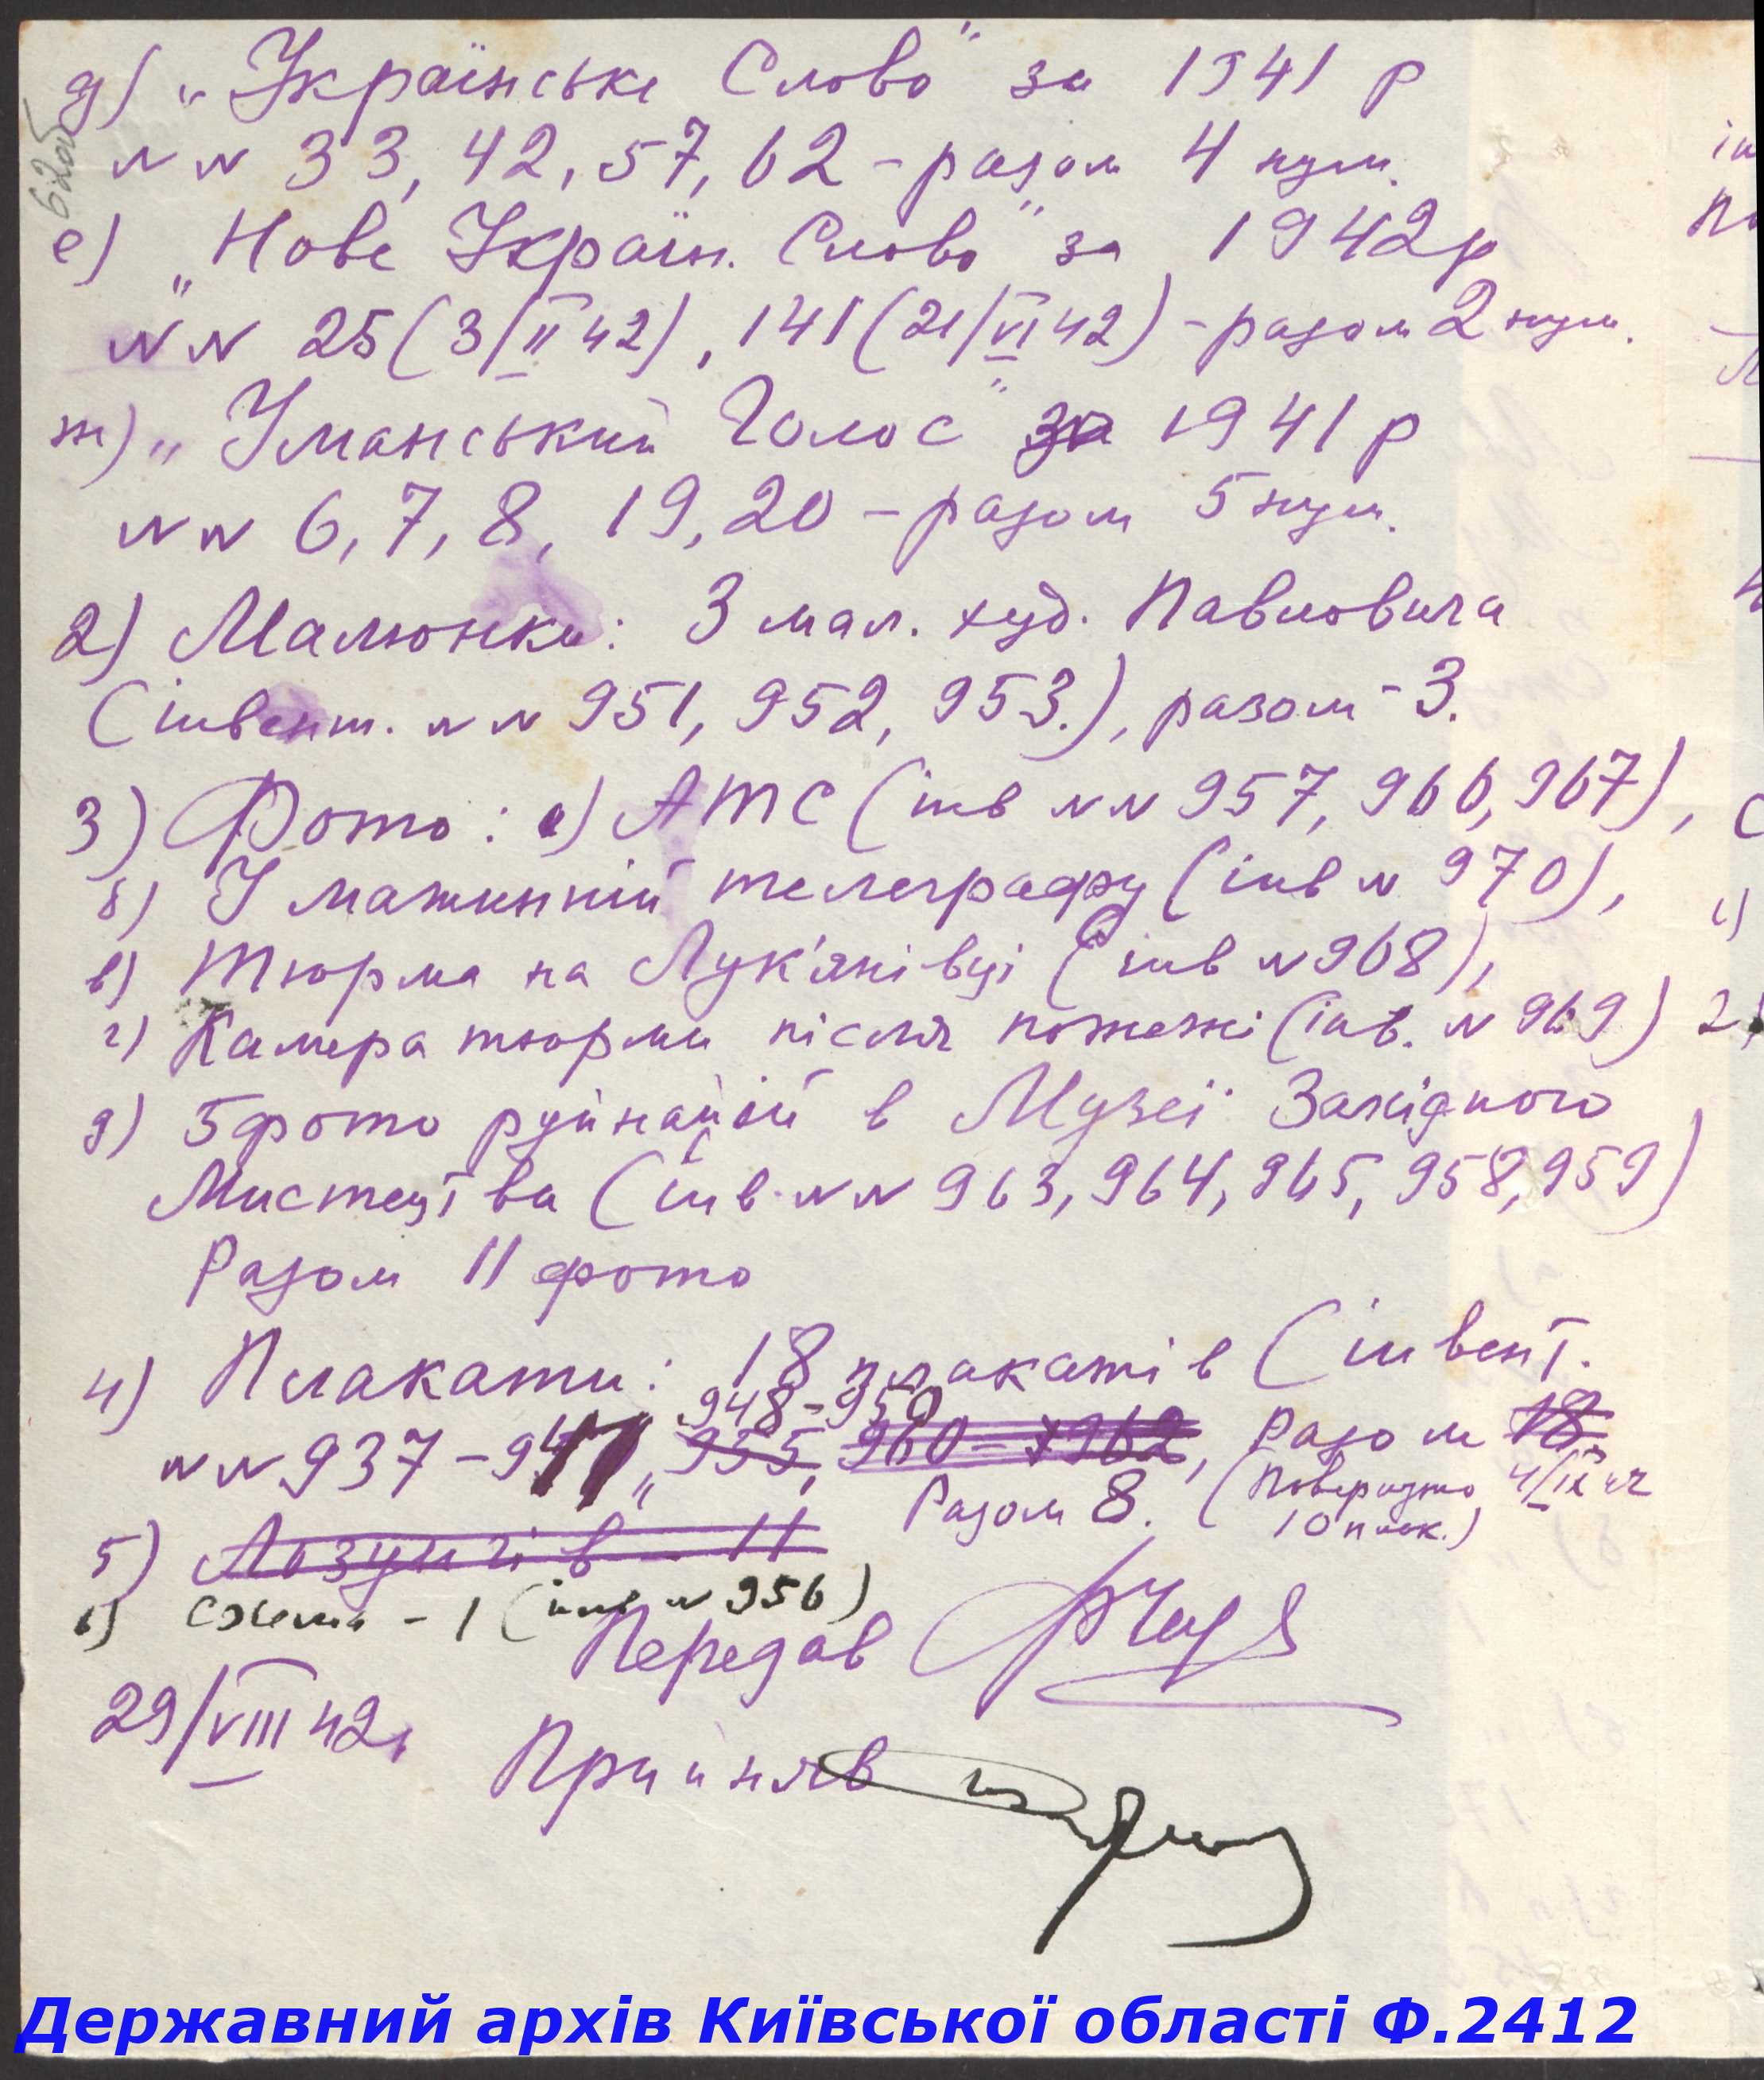 д) „Українське Слово" за 1941 р
NN 33, 42, 57, 62 – разом 4 нум.
е) „Нове Україн. Слово" за 1942р
NN 25 (3/II 42), 141 (21/VI 42) – разом 2 нум.
ж) „Уманський Голос" за 1941 р
NN 6, 7, 8, 19, 20 – разом 5 нум.
2) Малюнки: 3 мал. худ. Павловича
(інвент. NN 951, 952, 953.), разом – 3.
3) Фото: а) АТС (інв NN 957, 966, 967),
б) У машинній телеграфу (інв N 970),
в) Тюрма на Лук'янівці (інв N 968),
г) Камера тюрми після пожежі (інв. N 969)
д) 5 фото руйнацій в Музеї Західного
Мистецтва (інв. NN 963, 964, 965, 958, 959)
Разом 11 фото
4) Плакати: 18 плакатів (інвент.
948–950
NN 937–941, 955, 960–962, Разом 18
Разом 8. (Повернуто 4/IX 42
10 плак.)
5) Лозунгів – 11
6) схема – 1 (інв N 956)
Передав
29/VIII 42.
Прийняв
Державний архів Київської області Ф.2412